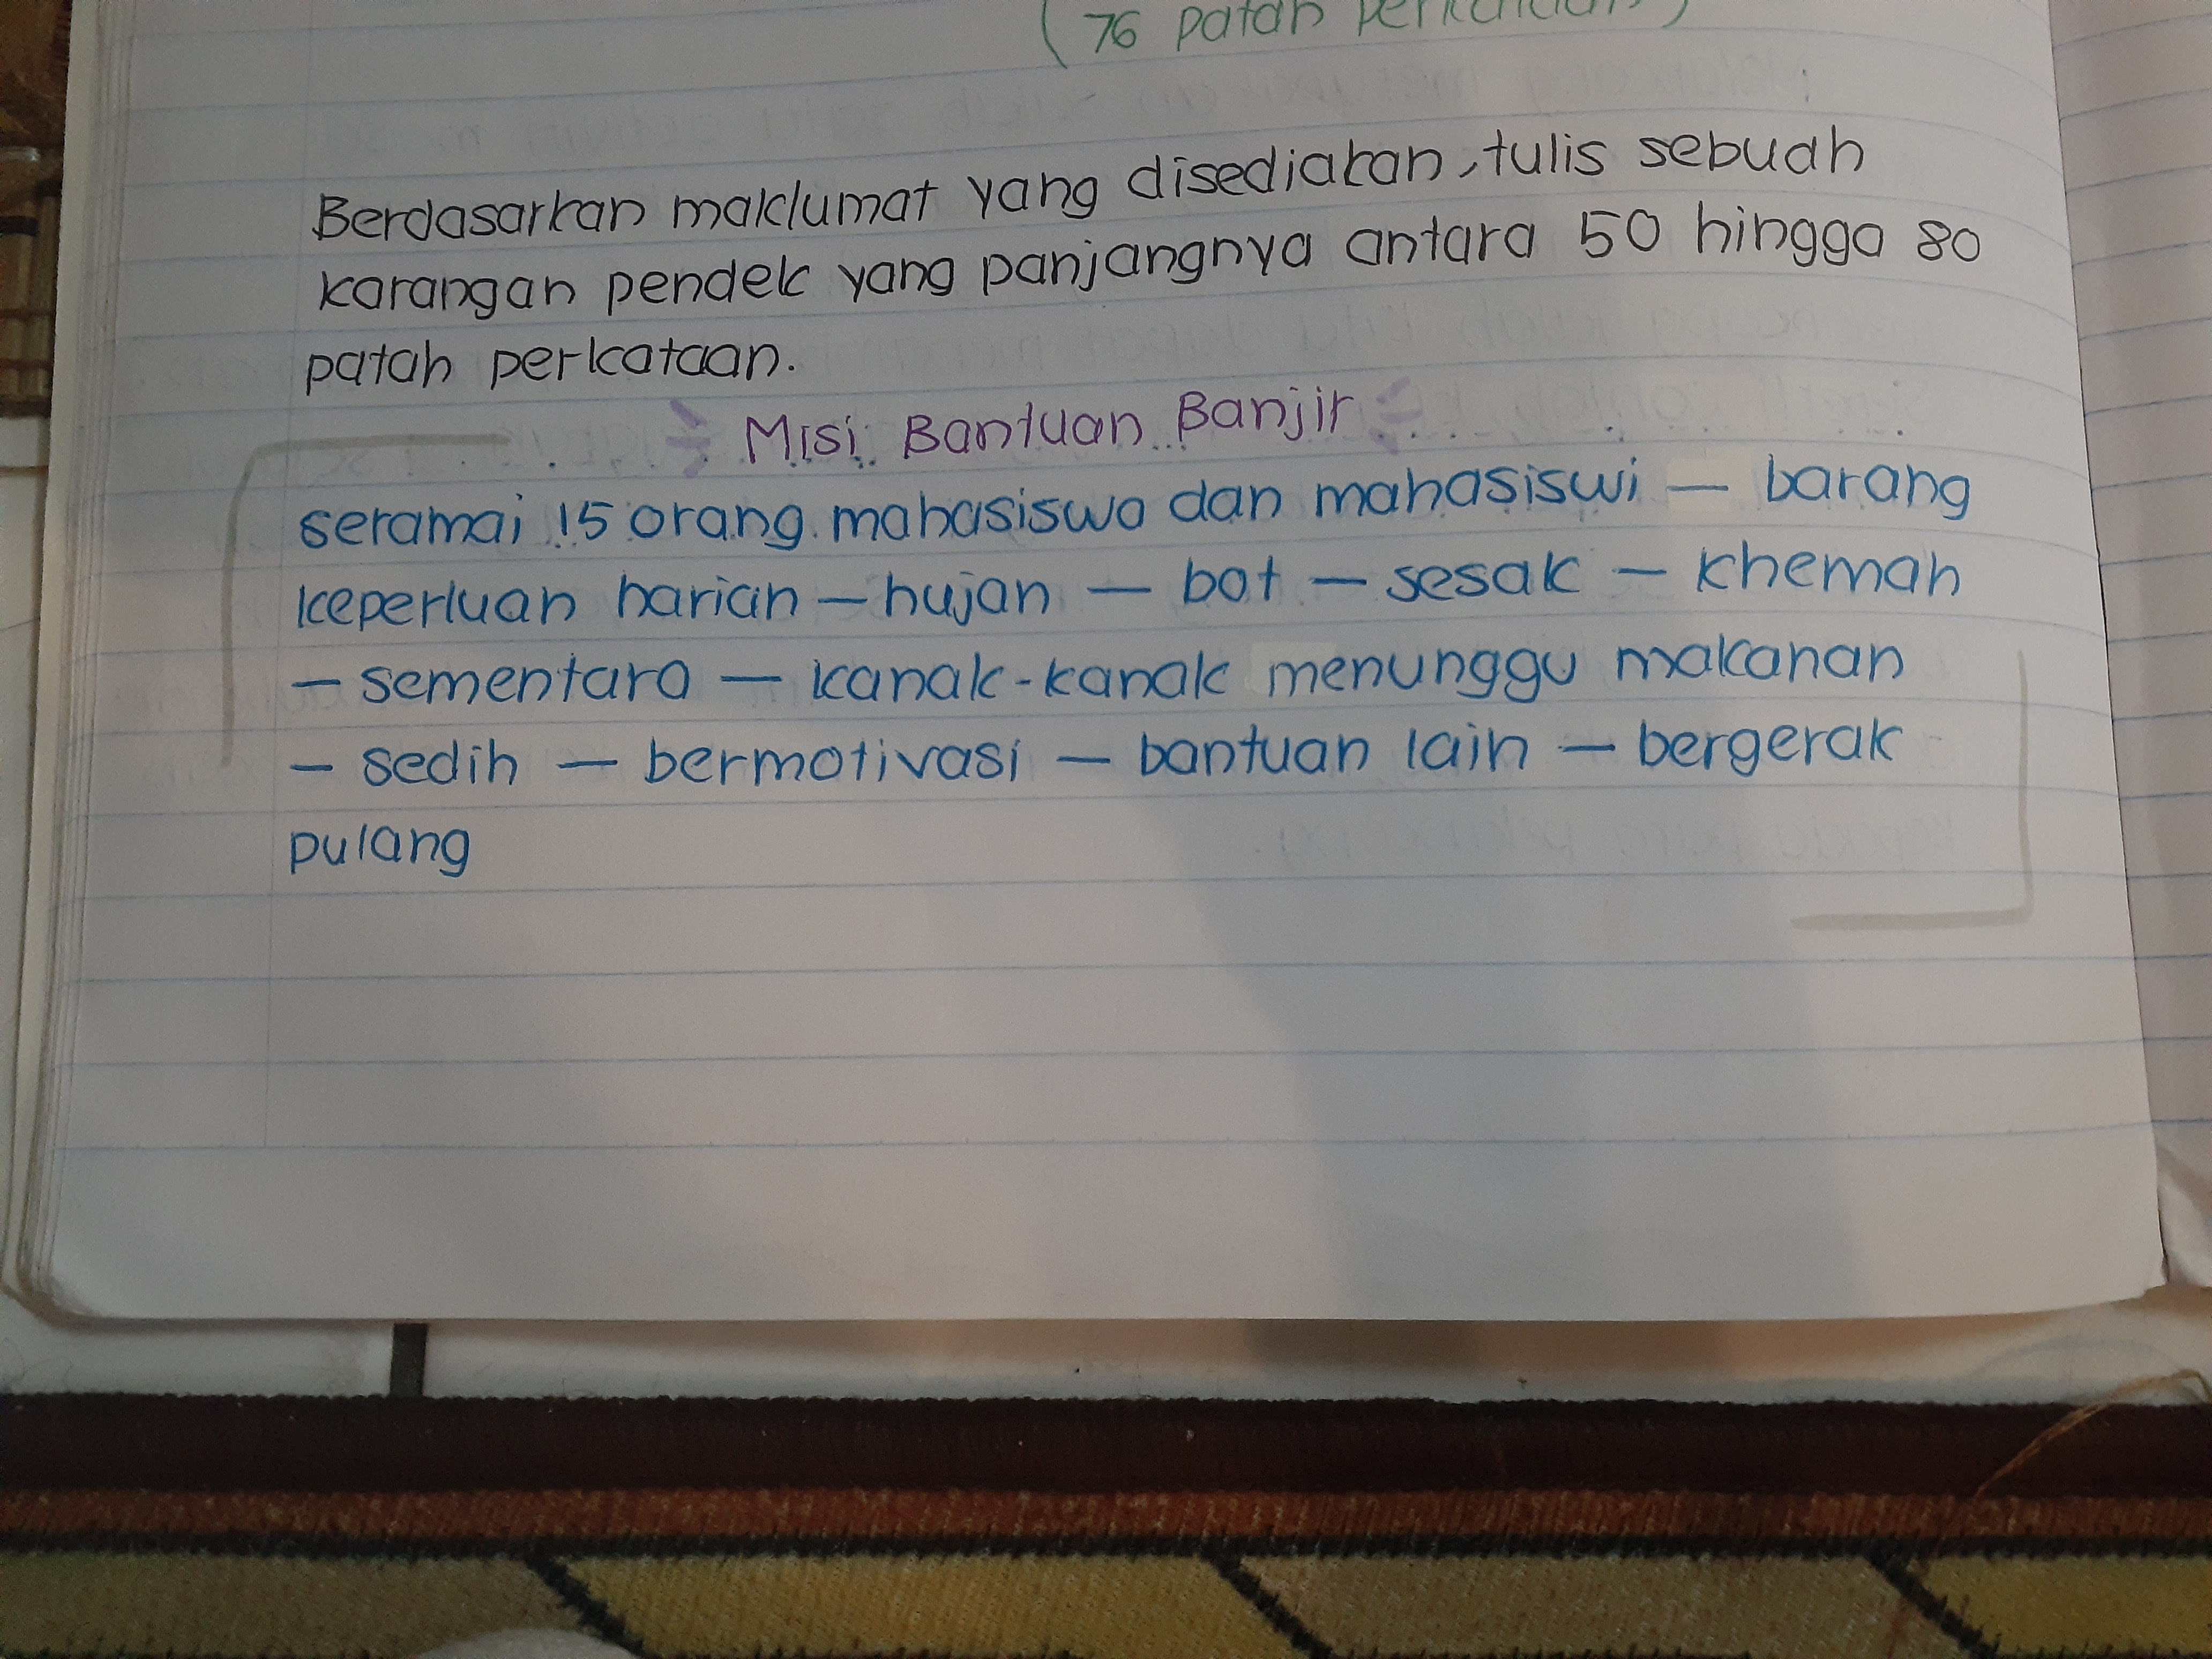 (76 patah perkataan)
Berdasarkan maklumat yang disediakan, tulis sebuah
karangan pendek yang panjangnya antara 50 hingga 80
patah perkataan.
Misi Bantuan Banjir
seramai 15 orang mahasiswa dan mahasiswi – barang
keperluan harian – hujan – bot – sesak – khemah
– sementara – kanak-kanak menunggu makanan
– sedih – bermotivasi – bantuan lain – bergerak
pulang